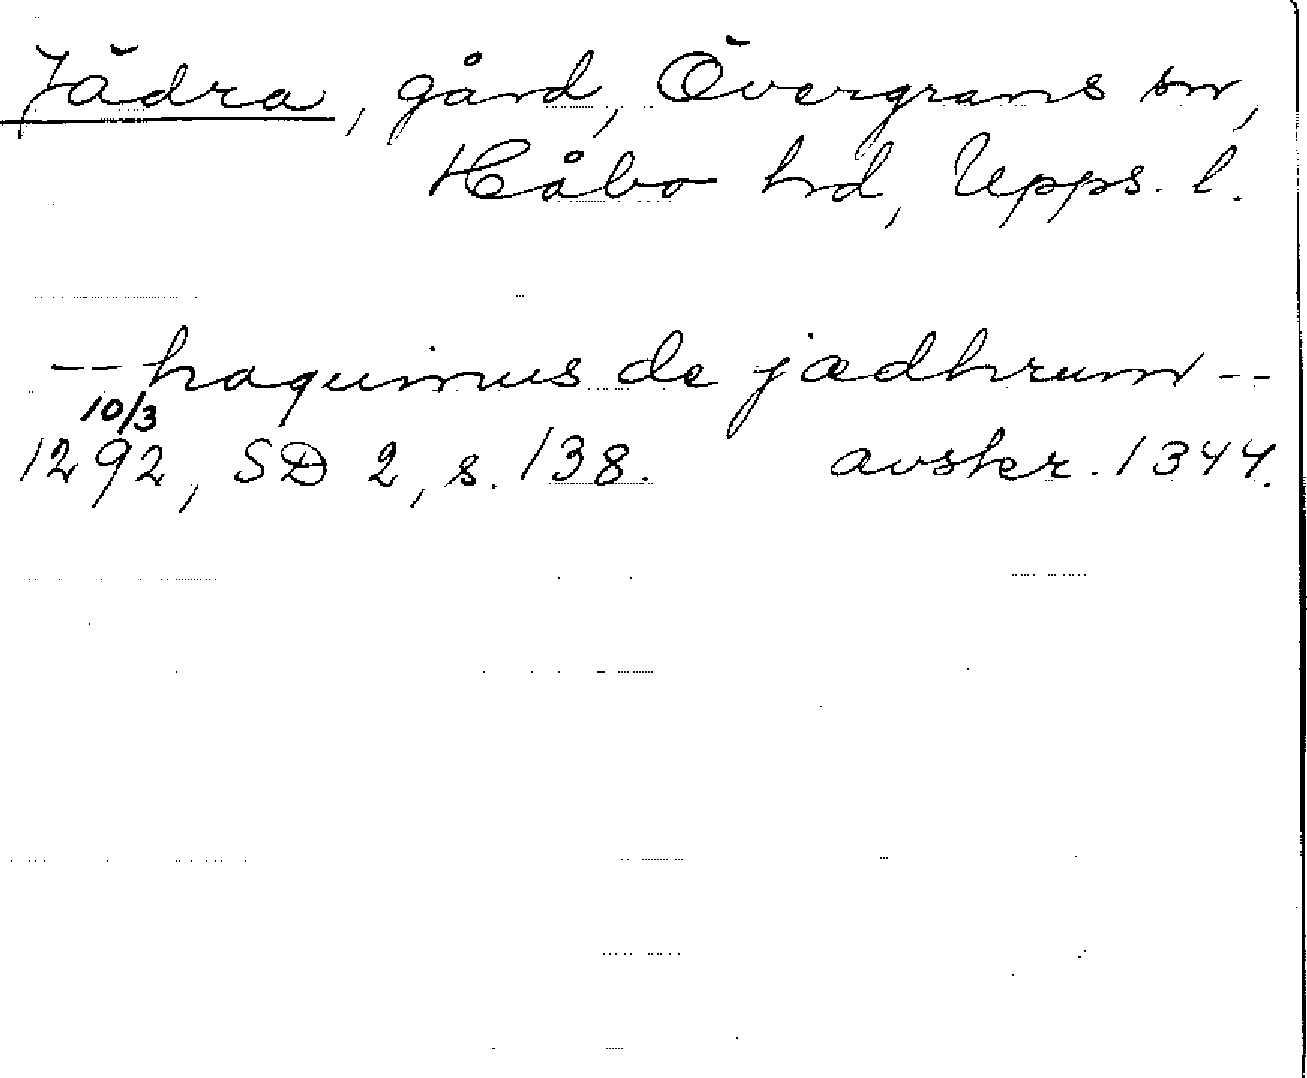 Jädra, gård, Övergrans sn,
Håbo hd, Upps. l.
-- haquinus de jædhrum --
10/3
1292, SD 2, s. 138. avskr. 1344.